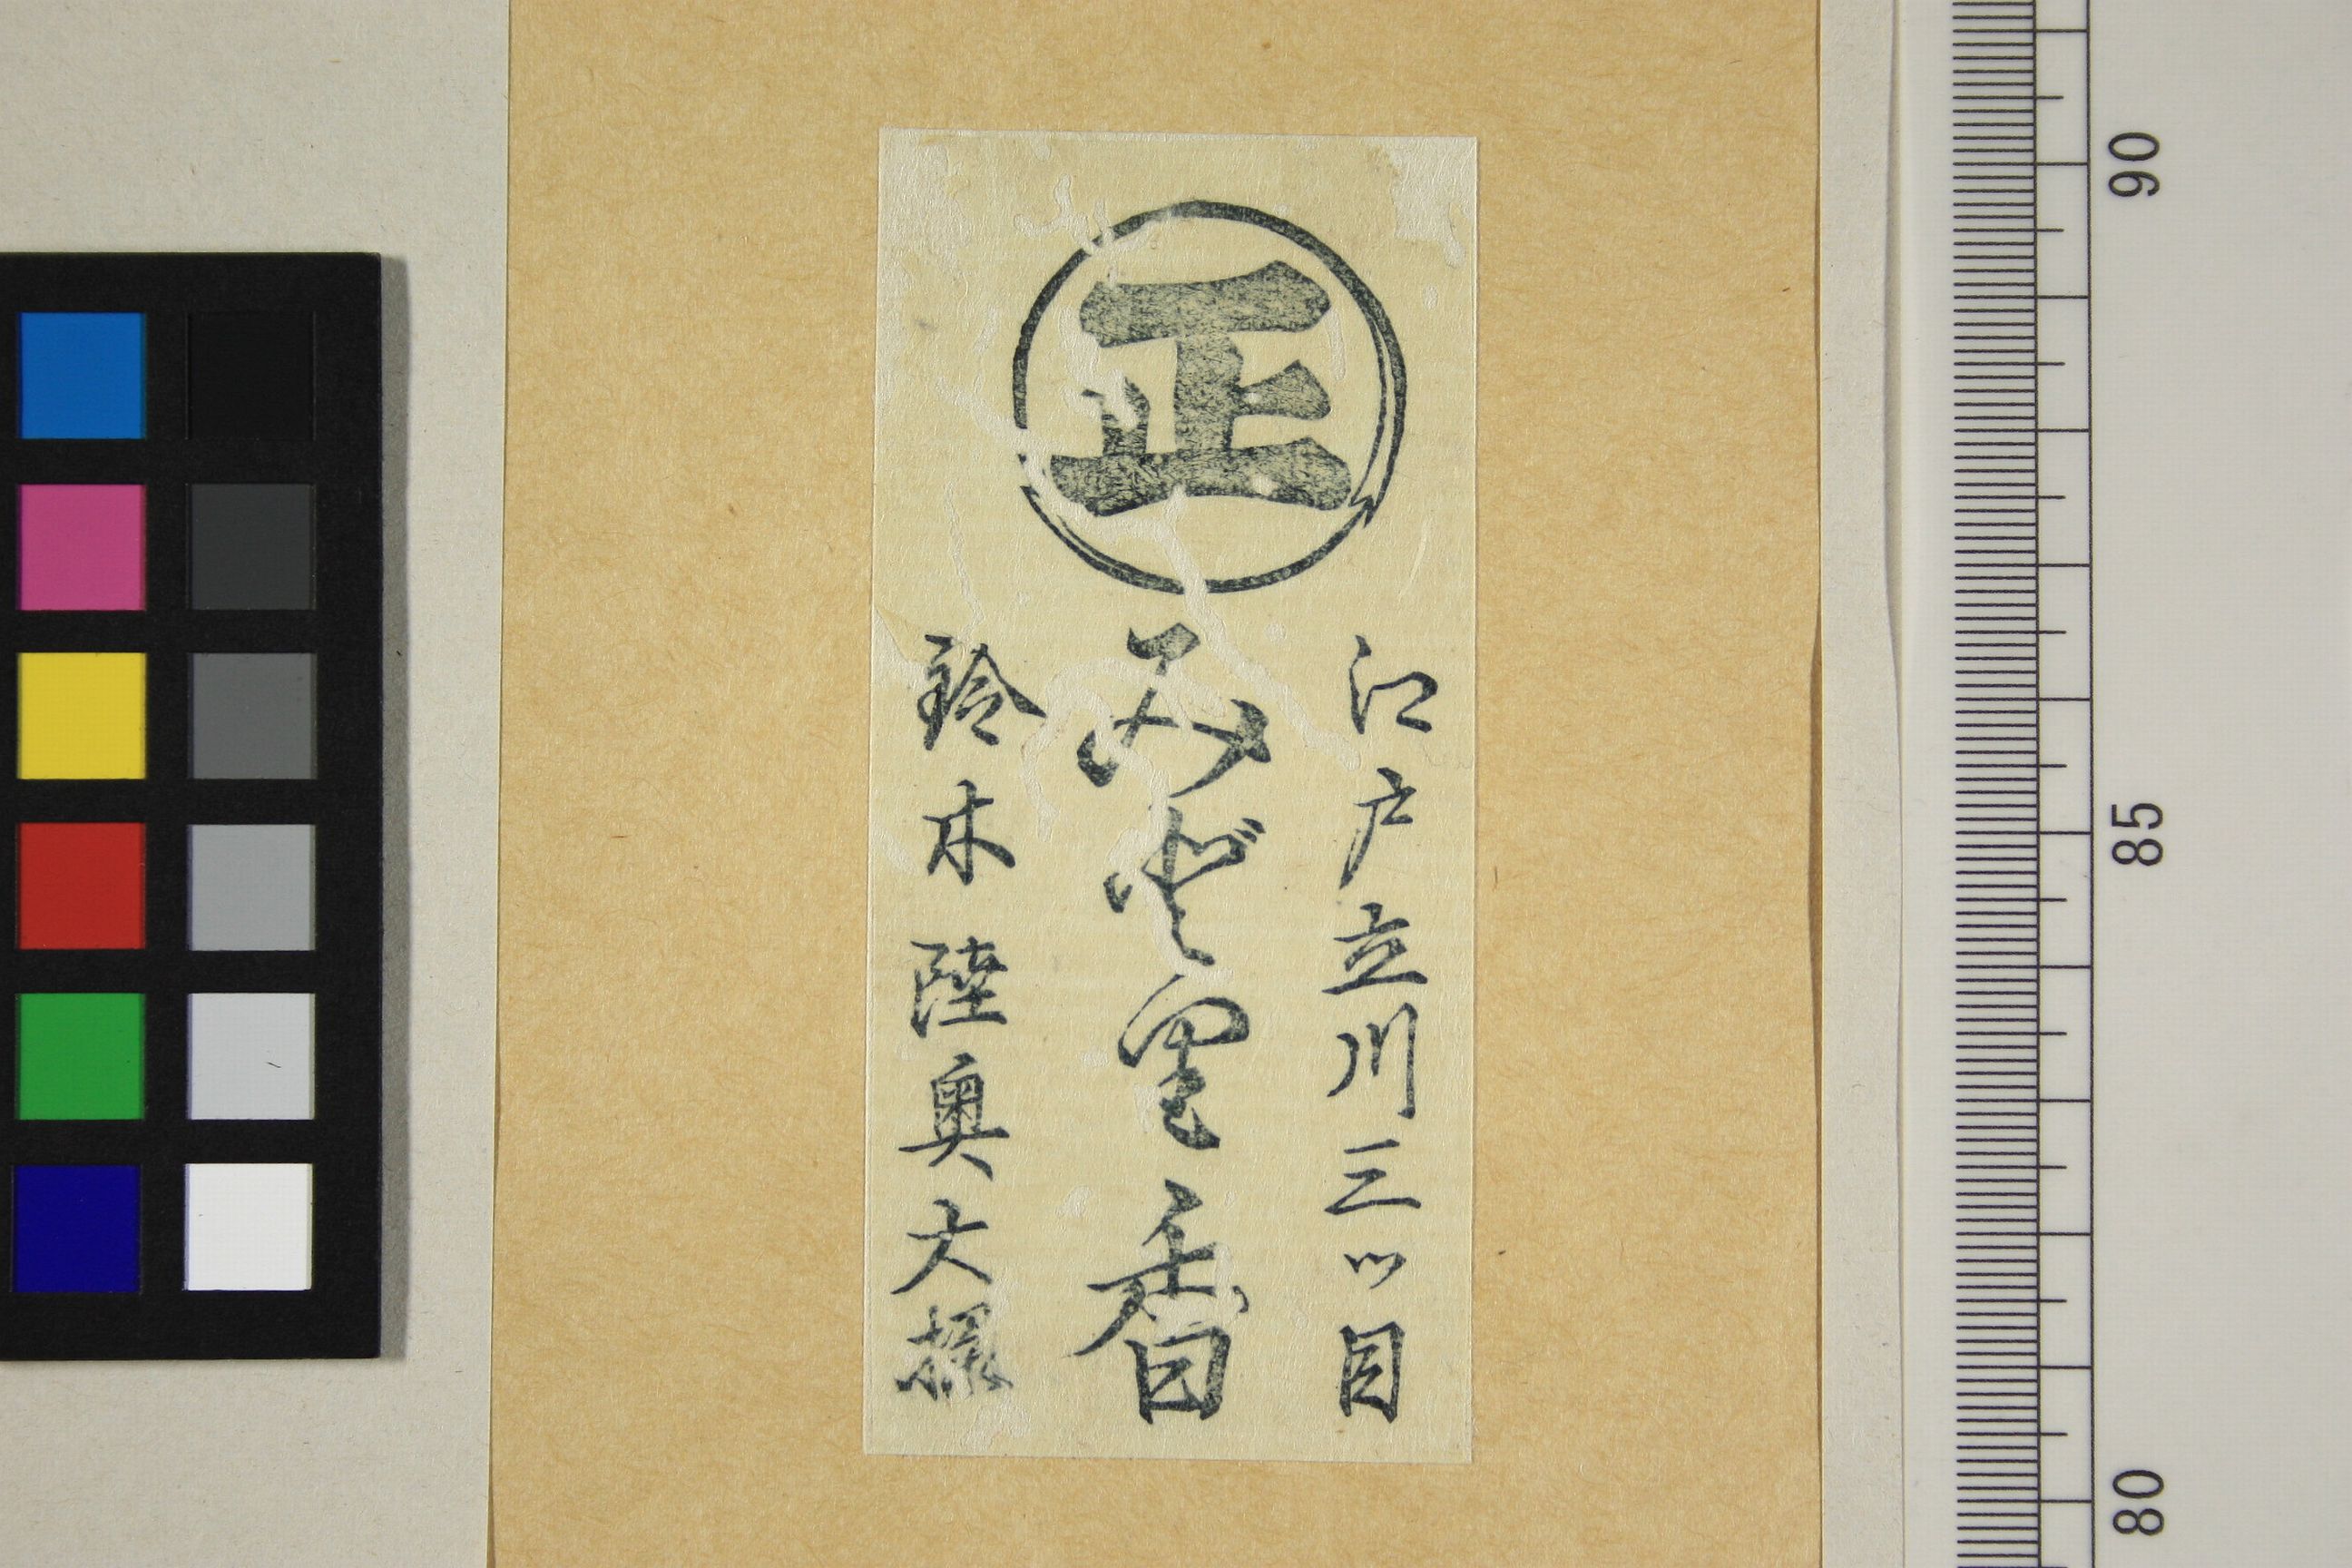 正
江戸立川三ツ目
みどり香
鈴木陸奥大掾
90
85
80